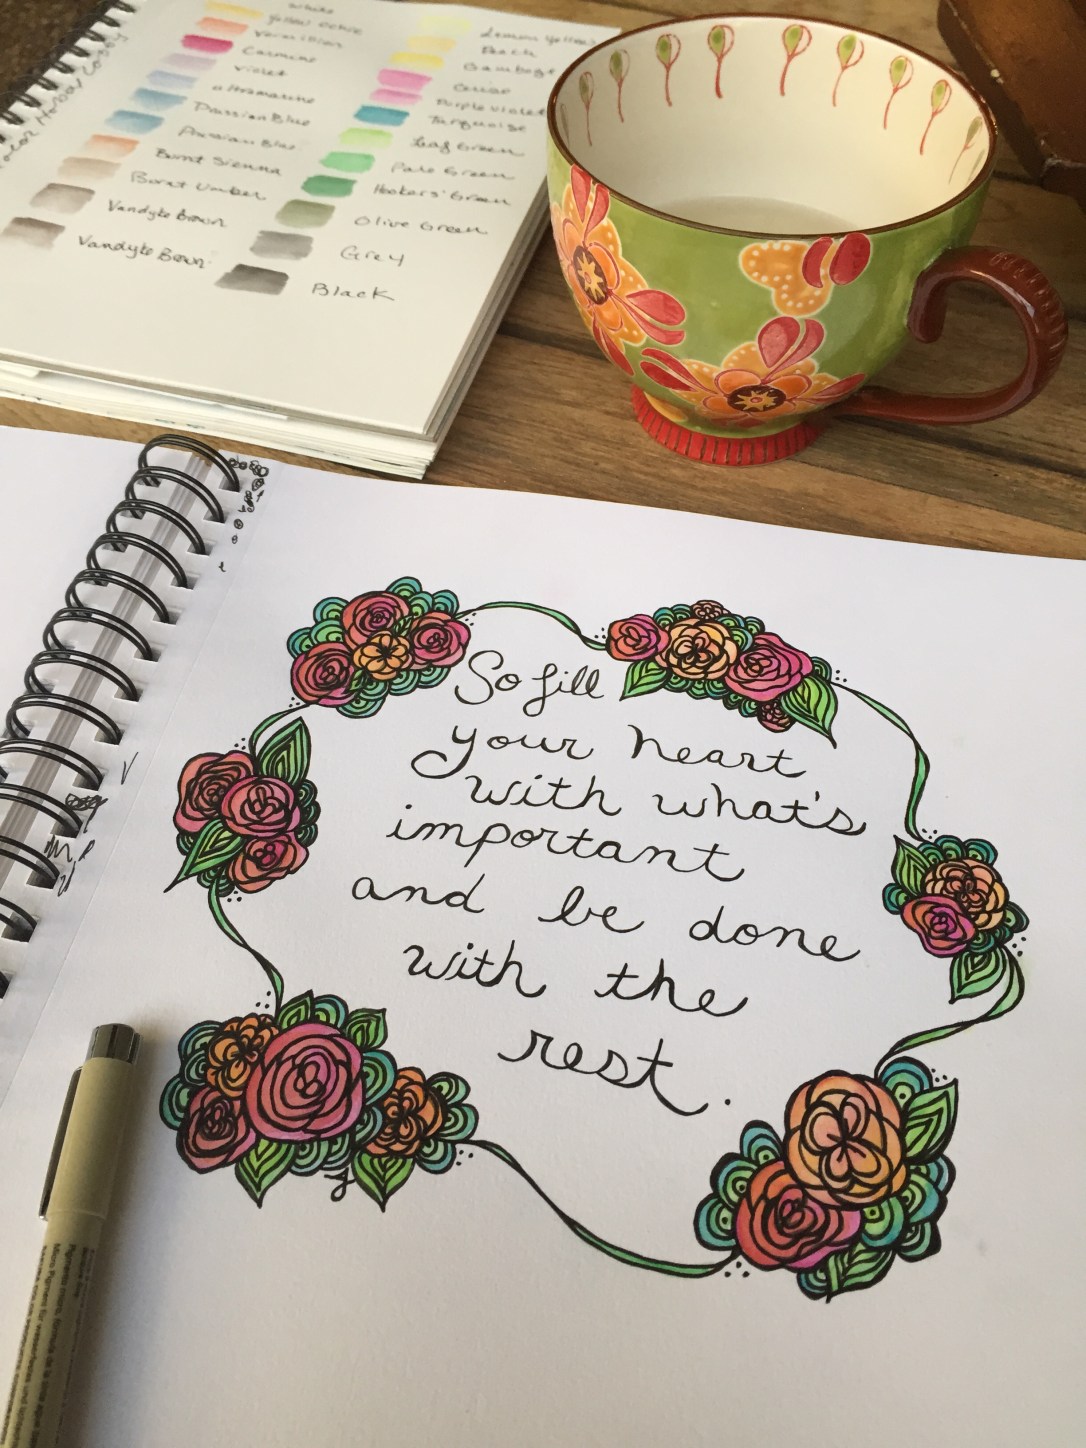 white
Yellow Ochre
Vermillion
Carmine
Violet
ultramarine
Prussian Blue
Prussian Blue
Burnt Sienna
Burnt Umber
Vandyke Brown
Vandyke Brown
Lemon Yellow
Peach
Gamboge
Cerise
Purple Violet
Turquoise
Leaf Green
Pale Green
Hookers' Green
Olive Green
Grey
Black
So fill
your heart
with what's
important
and be done
with the
rest.